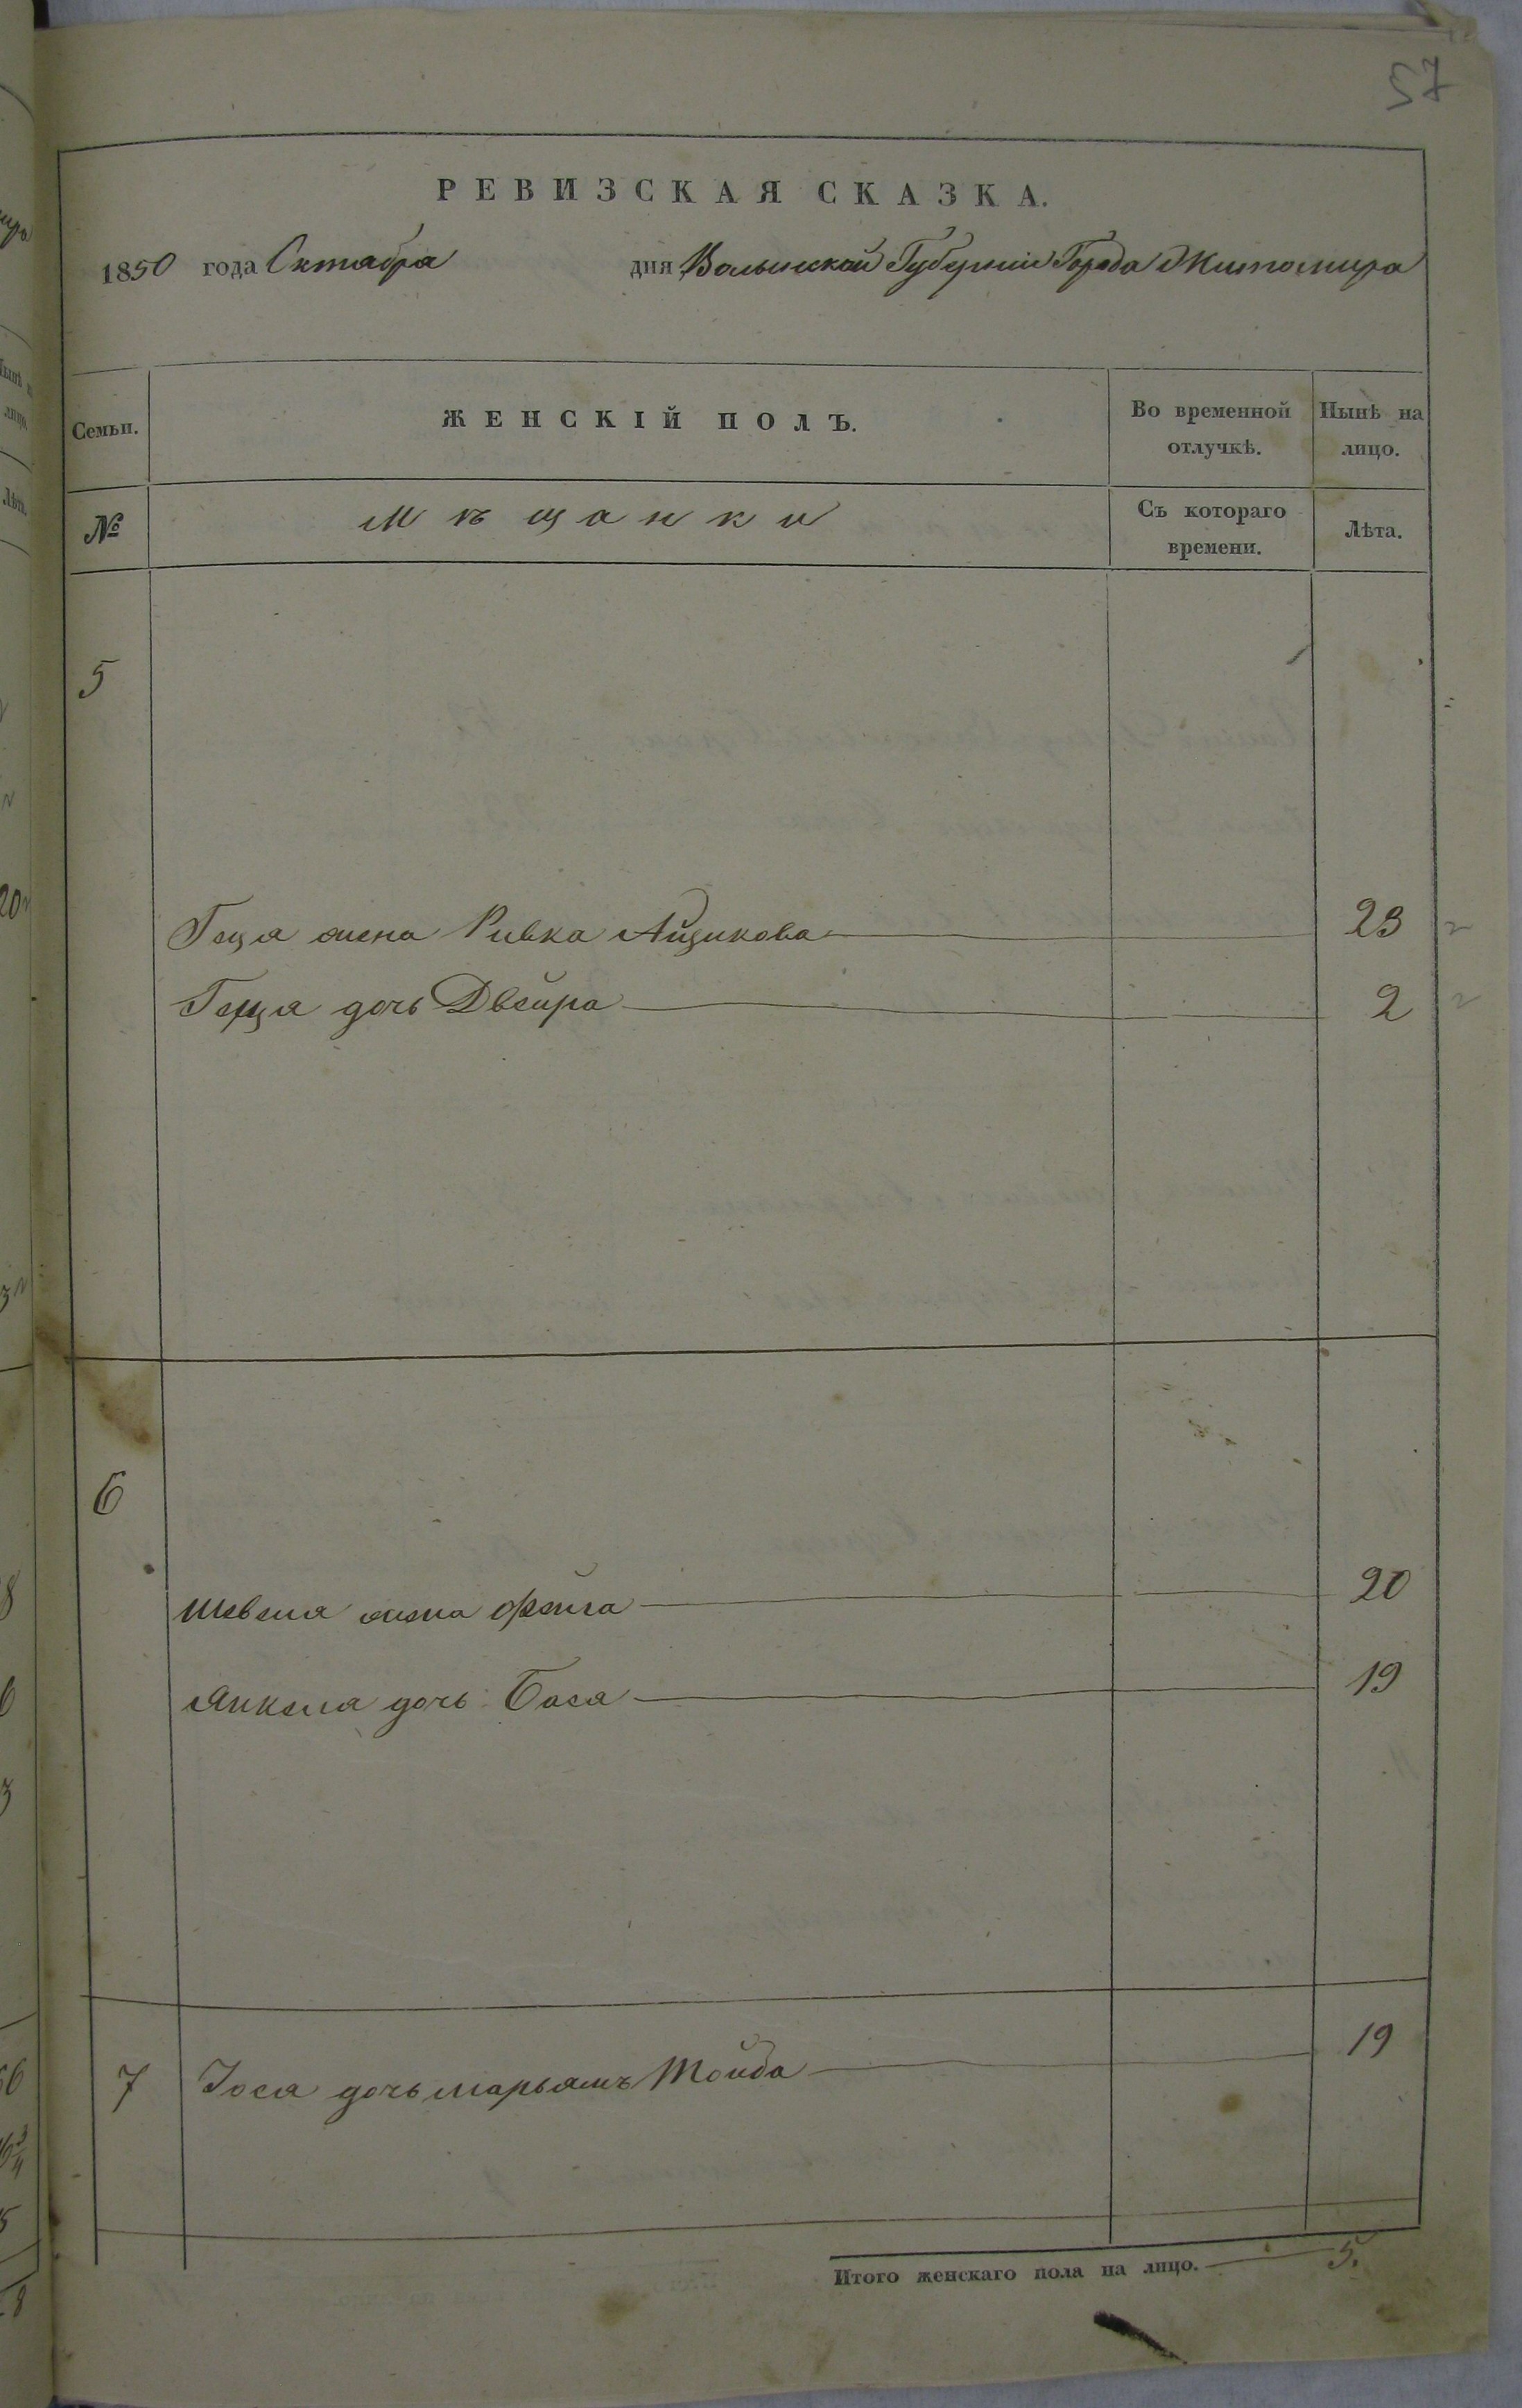 57
РЕВИЗСКАЯ СКАЗКА.
1850 года Октабра дня Волынской Губерніи Города Житомира
Семьи. ЖЕНСКІЙ ПОЛЪ. Во временной отлучкѣ. Нынѣ на лицо.
№ Мѣщанки Съ котораго времени. Лѣта.
5
Геця жена Ривка Айзикова 23
Геця дочь Двейра 2
6
Шевеля жена Фейга 20
Янкеля дочь Бася 19
7 Іося дочь Марьямъ Тойба 19
Итого женскаго пола на лицо. 5.